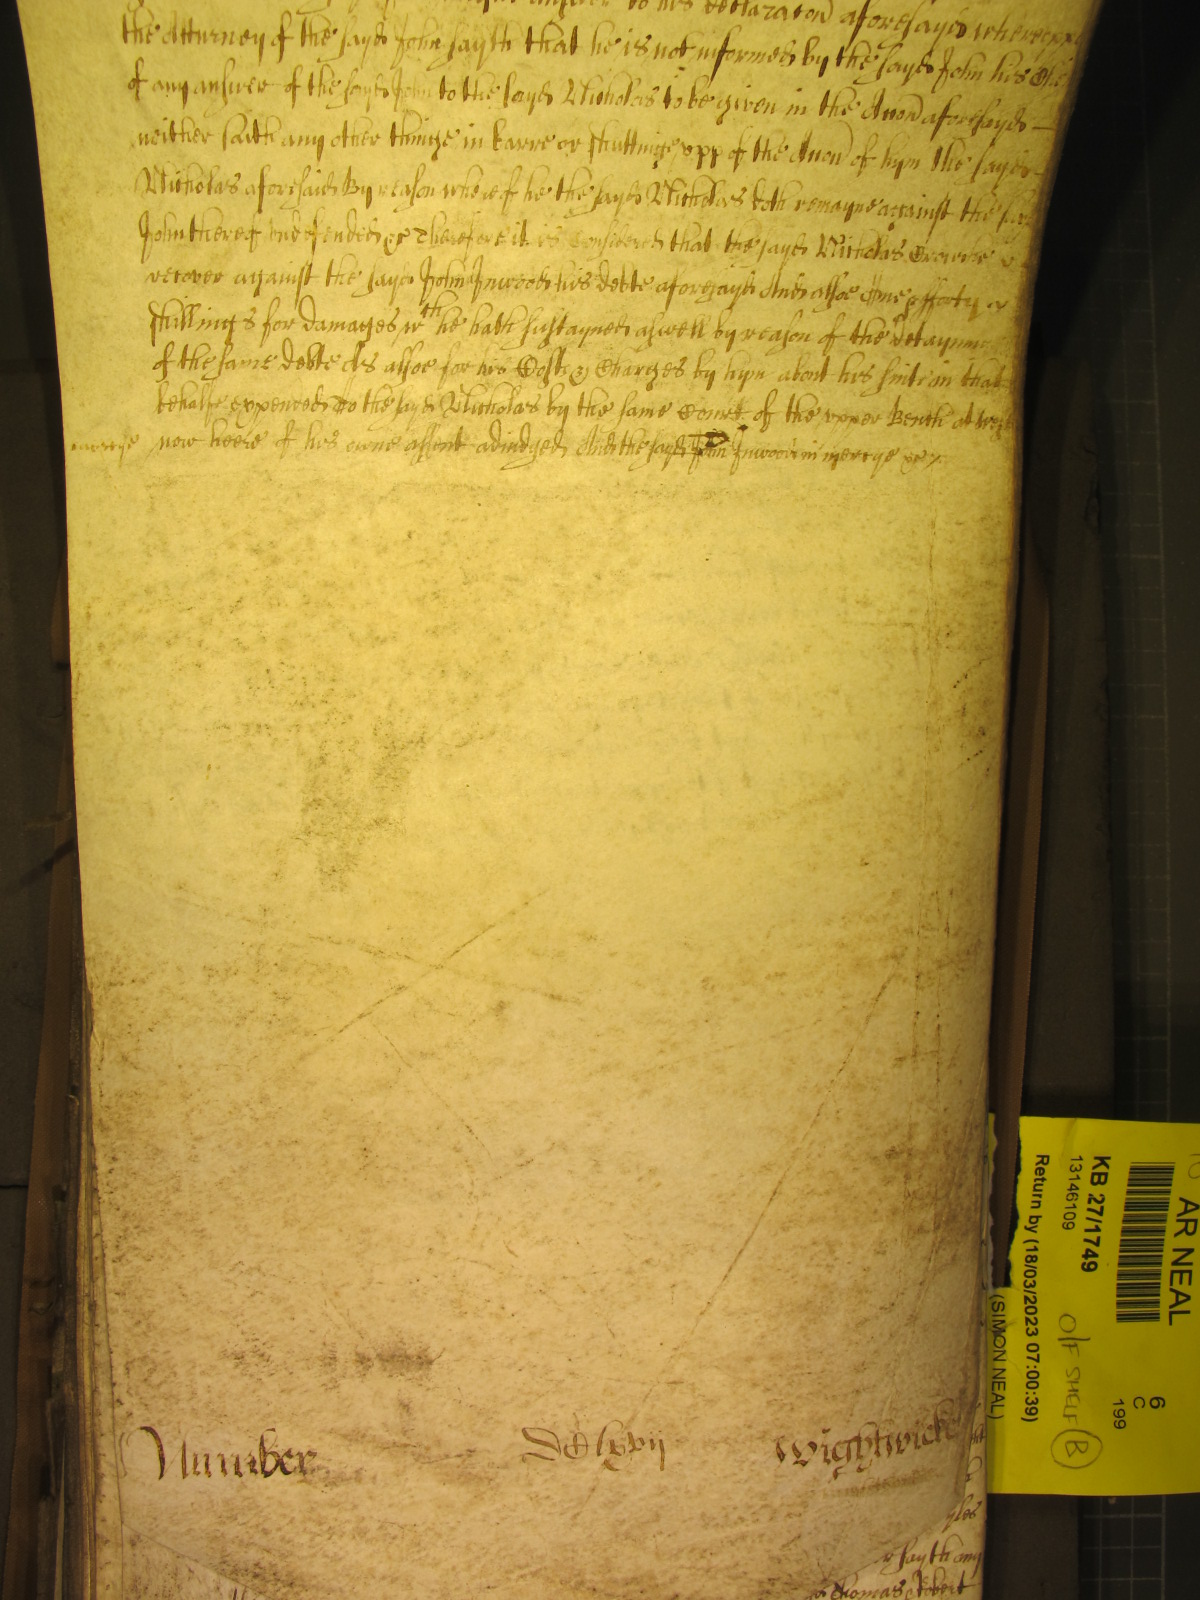 answer to his declaracon aforesayd whereupp
the Atturney of the sayd John sayth that he is not informed by the sayd John his
of any answer of the sayd John to the sayd Nicholas to be given in the Accon aforesayd
neither saith any other thinge in barre or shuttinge upp of the Accon of hym the sayd
Nicholas aforesaid By reason whereof he the sayd Nicholas doth remayne against the
John thereof undefended &c Therefore it is Considered that the sayd Nicholas
recover against the sayd John Inwood his debte aforesayd And alsoe
shillings for damages wch he hath sustayned aswell by reason of the detayning
of the same debte As alsoe for his Costs & Charges by hym about his suite in that
behalfe expended to the sayd Nicholas by the same Court of the upper Bench at
mercye
now heere of his owne assent adiudged And the sayd John Inwood in mercye &c
Number
Wightwick
r sayth any
Thomas Robert
AR NEAL
6
C
199
KB 27/1749
13146109
O/F SHELF B
Return by (18/03/2023 07:00:39)
(SIMON NEAL)